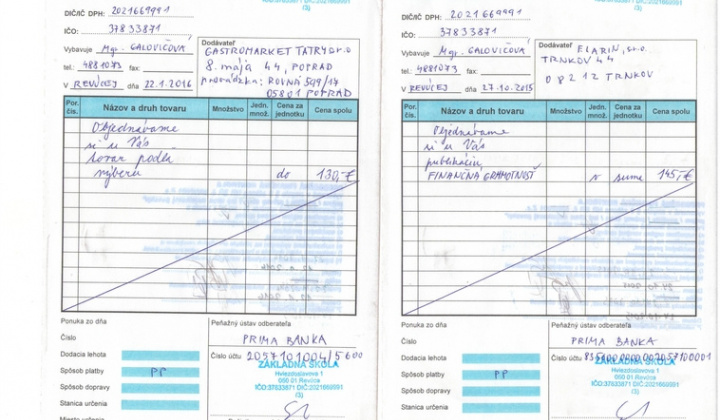 DIČ/IČ DPH: 2021669991
IČO: 37833871
Vybavuje Mgr. GALOVIČOVÁ
tel.: 4881073 fax:
V REVÚCEJ dňa 22.1.2016
Dodávateľ
GASTROMARKET TATRY s.r.o
8. mája 44, POPRAD
prevádzka: ROVNÁ 599/17
05801 POPRAD
Por. čís.
Názov a druh tovaru
Množstvo
Jedn. množ.
Cena za jednotku
Cena spolu
Objednávame
si u Vás
tovar podľa
výberu do 130,-€
Ponuka zo dňa
Číslo
Dodacia lehota
Spôsob platby PP
Spôsob dopravy
Stanica určenia
Miesto určenia
Peňažný ústav odberateľa
PRIMA BANKA
Číslo účtu 2057101004/5600
ZÁKLADNÁ ŠKOLA
Hviezdoslavova 1
050 01 Revúca
IČO:37833871 DIČ:2021669991
(3)
(3)
DIČ/IČ DPH: 2021669991
IČO: 37833871
Vybavuje Mgr. GALOVIČOVÁ
tel.: 4881073 fax:
V REVÚCEJ dňa 27.10.2015
Dodávateľ
ELARIN, s.r.o.
TRNKOV 44
082 12 TRNKOV
Por. čís.
Názov a druh tovaru
Množstvo
Jedn. množ.
Cena za jednotku
Cena spolu
Objednávame
si u Vás
publikáciu
FINANČNÁ GRAMOTNOSŤ v sume 145,-€
Ponuka zo dňa
Číslo
Dodacia lehota
Spôsob platby PP
Spôsob dopravy
Stanica určenia
Peňažný ústav odberateľa
PRIMA BANKA
Číslo účtu
ZÁKLADNÁ ŠKOLA
Hviezdoslavova 1
050 01 Revúca
IČO:37833871 DIČ:2021669991
(3)